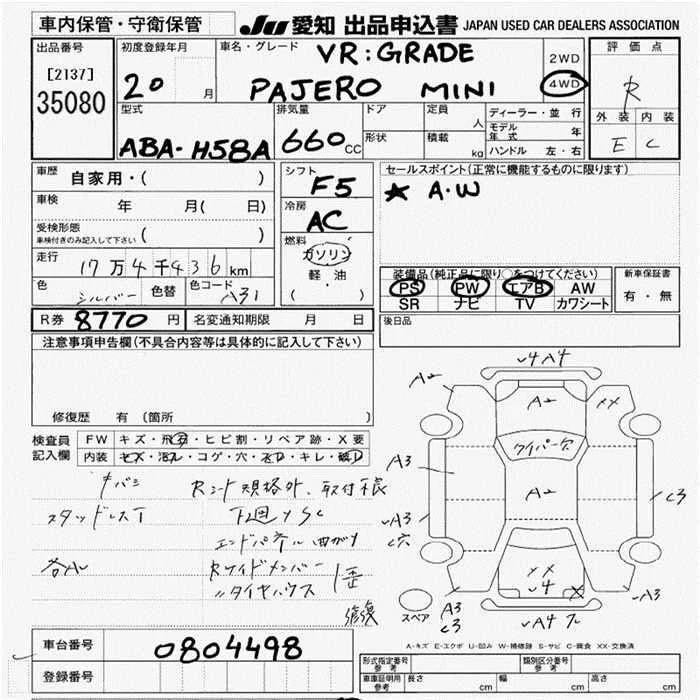 車内保管・守衛保管
JU 愛知 出品申込書 JAPAN USED CAR DEALERS ASSOCIATION
出品番号 初度登録年月 車名・グレード VR:GRADE 2WD 評価点
[2137] 20 月 PAJERO MINI 4WD R
35080 型式 排気量 ドア 定員 人 ディーラー・並行 外装 内装
ABA-H58A 660 CC 形状 積載 kg モデル年式 年 E C
ハンドル 左・右
車歴 自家用・( ) シフト F5 セールスポイント(正常に機能するものに限ります)
車検 年 月( 日) 冷房 AC ★ A・W
受検形態
車検付きのみ記入して下さい ( )
燃料 ガソリン
走行 17万4千436km 軽油
( ・ )
装備品(純正品に限り○をつけてください) 新車保証書
色 シルバー 色替 色コード A31 PS PW エアB AW 有・無
SR ナビ TV カワシート
R券 8770円 名変通知期限 月 日 後日品
注意事項申告欄(不具合内容等は具体的に記入して下さい)
修復歴 有 (箇所 )
検査員 FW キズ・飛石・ヒビ割・リペア跡・X要
記入欄 内装 キズ・汚レ・コゲ・穴・スレ・キレ・破レ
Rシート規格外、取付様
スタッドレスT 下廻りSC
エンドパネル曲がり
Rサイドメンバー
〃タイヤハウス
歪
修復
√4 A4
A2
A2
XX
ワイパー欠
A3
A2
C3
√A3
C穴
XX
√4
X
√A3
スペア A3
C3
√A4
A-キズ E-エクボ U-凹み W-補修跡 S-サビ C-腐食 XX-交換済
車台番号 0804498
登録番号
形式指定番号 参考 類別区分番号 参考
車庫証明用 参考 長さ cm 幅 cm 高さ cm